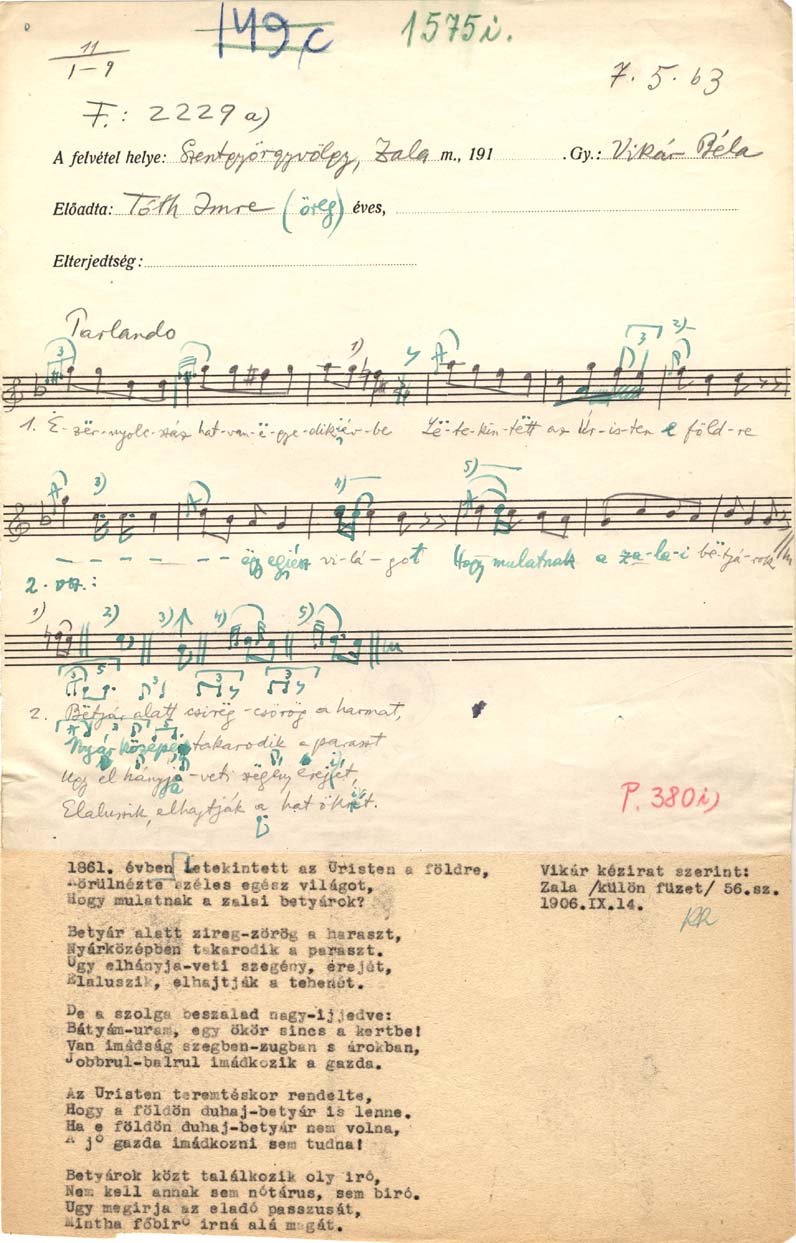 149c 1575i.
11
1-9
7.5.63
F.: 2229 a)
A felvétel helye: Szentgyörgyvölgy, Zala m., 191 . Gy.: Vikár Béla
Előadta: Tóth Imre (öreg) éves,
Elterjedtség:
Parlando
3 1) 3 2)
1. Ë-zër-nyolc-száz hat-van-ë-gye-dik év-be Lë-te-kin-tëtt az Úr-is-ten e föld-re
3) 4) 5)
egész vi-lá-got Hogy mulatnak a za-la-i bëtyárok
2. vsz.:
1) 2) 3) 4) 5)
2. Bëtyár alatt csirëg-csörög a harmat,
Nyár középen takarodik a paraszt
Ugy el hányja-veti szëgény erejét,
Elaluszik, elhajtják a hat ökrét.
P. 380i)
1861. évben Letekintett az Uristen a földre,
Körülnézte széles egész világot,
Hogy mulatnak a zalai betyárok?
Vikár kézirat szerint:
Zala /külön füzet/ 56.sz.
1906.IX.14.
RR
Betyár alatt zireg-zörög a haraszt,
Nyárközépben takarodik a paraszt.
Ugy elhányja-veti szegény, erejét,
Elaluszik, elhajtják a tehenét.
De a szolga beszalad nagy-ijjedve:
Bátyám-uram, egy ökör sincs a kertbe!
Van imádság szegben-zugban s árokban,
Jobbrul-balrul imádkozik a gazda.
Az Uristen teremtéskor rendelte,
Hogy a földön duhaj-betyár is lenne.
Ha e földön duhaj-betyár nem volna,
A jó gazda imádkozni sem tudna!
Betyárok közt találkozik oly iró,
Nem kell annak sem nótárus, sem biró.
Ugy megirja az eladó passzusát,
Mintha főbiró irná alá magát.